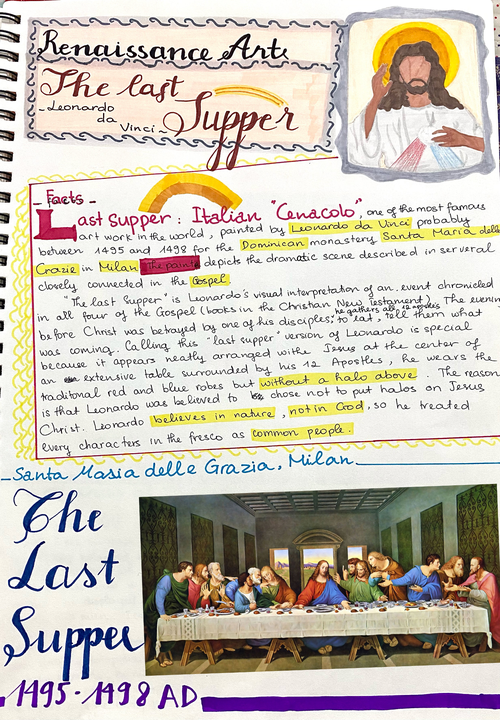 Renaissance Art
The last
Supper
- Leonardo
da
Vinci -
- Facts -
Last Supper : Italian "Cenacolo", one of the most famous
art work in the world, painted by Leonardo da Vinci probably
between 1495 and 1498 for the Dominican monastery Santa Maria delle
Grazie in Milan The paints depicts the dramatic scene described in serveral
closely connected in the Gospel.
"The last Supper" is Leonardo's visual interpretation of an event chronicled
in all four of the Gospel (books in the Christian New Testament). The evening
he gathers all 12 apostles
before Christ was betrayed by one of his disciples, to eat, tell them what
was coming. Calling this "last supper" version of Leonardo is special
because it appears neatly arranged with Jesus at the center of
an extensive table surrounded by his 12 Apostles, he wears the
traditional red and blue robes but without a halo above. The reason
is that Leonardo was believed to chose not to put halos on Jesus
Christ. Leonardo believes in nature, not in God, so he treated
every characters in the fresco as common people.
Santa Masia delle Grazia, Milan
The
Last
Supper
1495-1498 AD